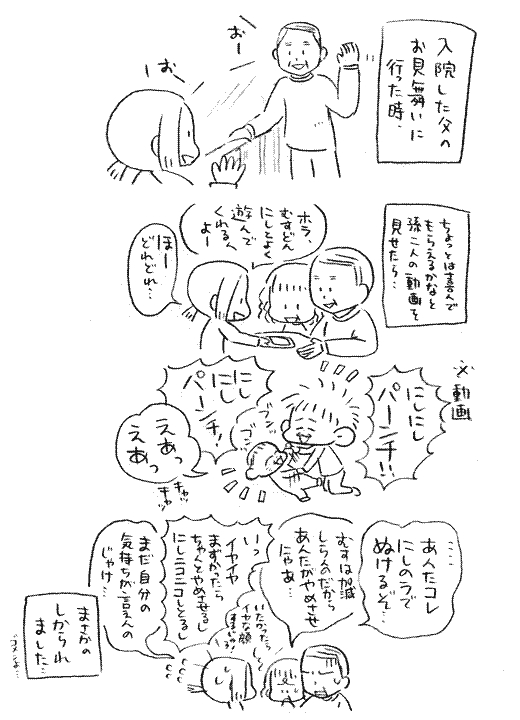 入院した父の
お見舞いに
行った時、
おー
おー
ちょっとは喜んで
もらえるかなと
孫二人の動画を
見せたら…
ホラ、
むすどん
にしとよく
遊んで
くれるんよー
ほー
どれどれ…
※動画
にしにし
パーンチ!!
にし
にし
パーンチ!
えあっ
えあっ
キャッ
キャッ
……
あんたコレ
にしのうで
ぬけるぞ…
むすは加減
しらんのだから
あんたがやめさせ
にゃあ…
いっ
イヤイヤ
まずかったら
ちゃんとやめさせるし
にしニコニコしとるし
いたかったら
イヤな顔
するじゃろ
まだ自分の
気持ちが言えんの
じゃけ…
まさかの
しかられ
ました…